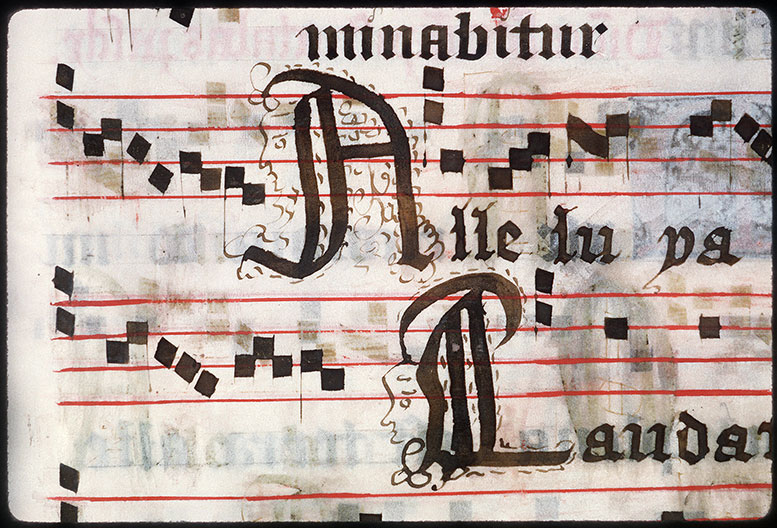 minabitur
Alle lu ya
Laudat